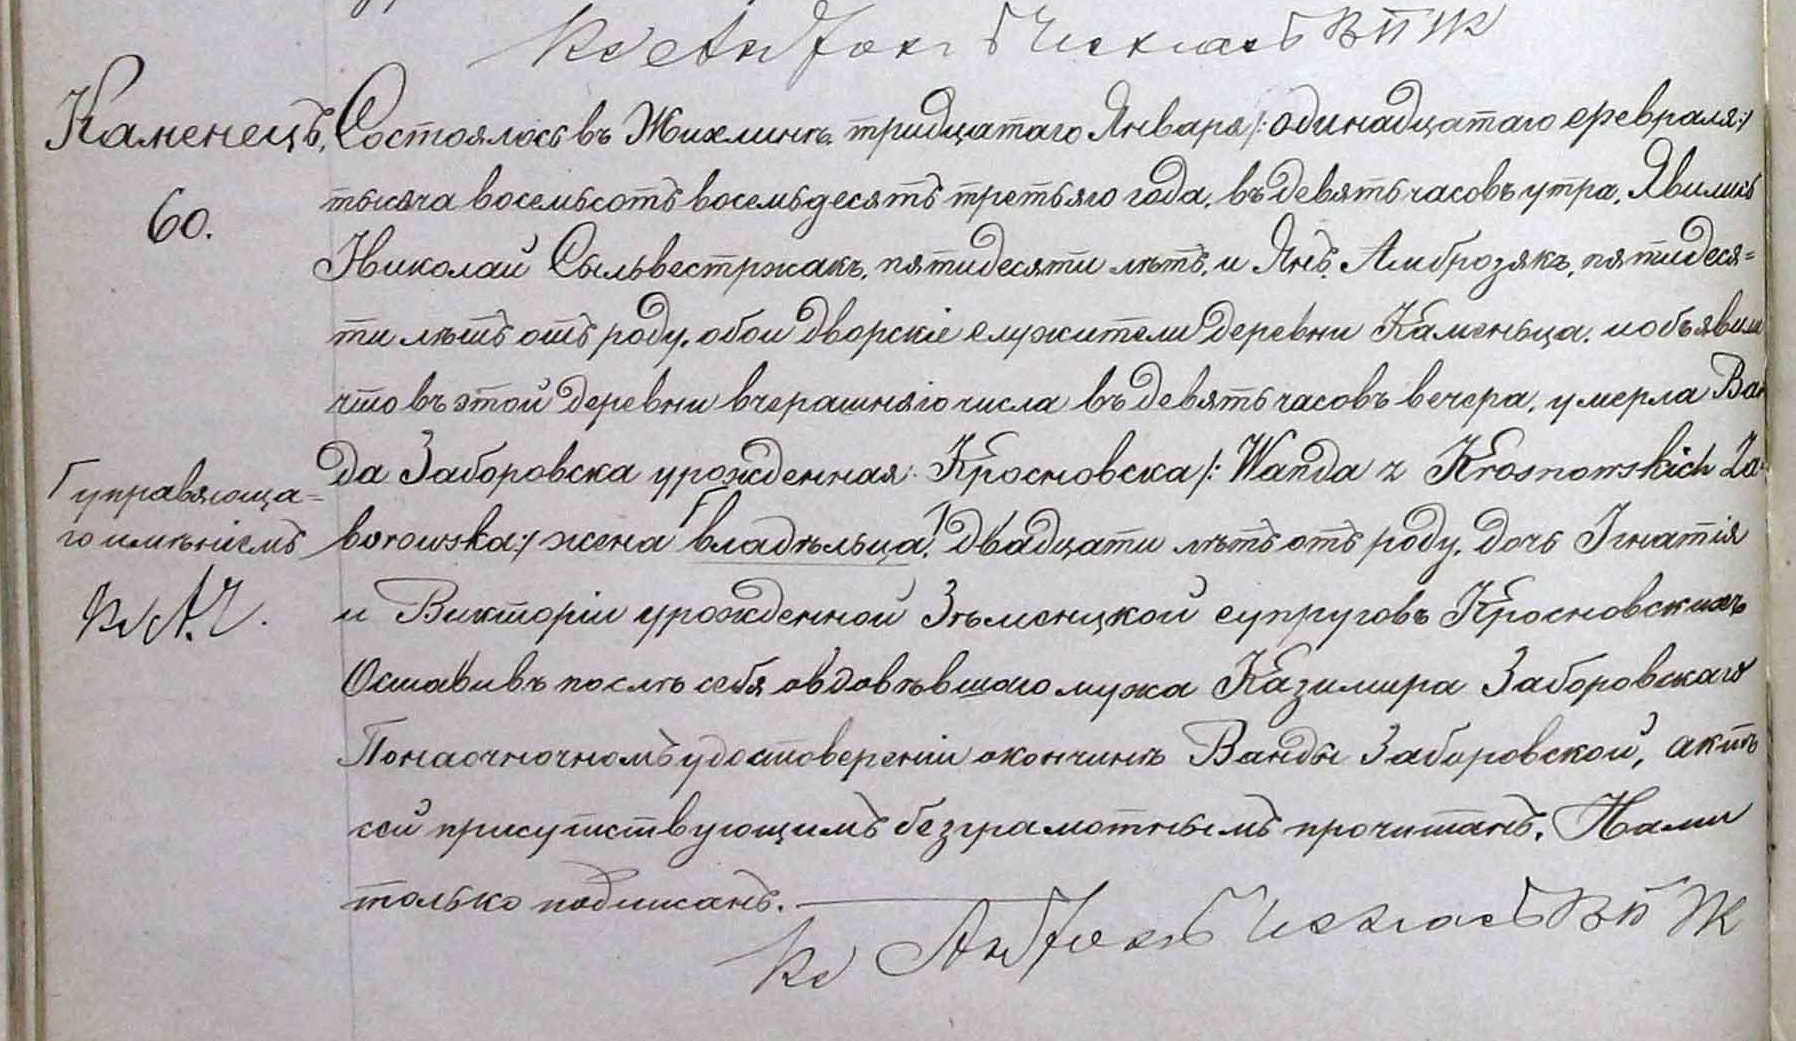 Кс Андрей Чекласъ ВПЖ
Каменецъ,
60.
Состоялось въ Жихлинѣ тридцатаго Января /: одинадцатаго февраля :/
тысяча восемьсотъ восемьдесятъ третьяго года, въ девять часовъ утра. Явились
Николай Сыльвестржакъ, пятидесяти лѣтъ, и Янъ Амброзякъ, пятидеся=
ти лѣтъ отъ роду, обои дворскіе служители деревни Каменьца, и объявили
что въ этой деревни вчерашняго числа въ девять часовъ вечера, умерла Ван
да Заборовска урожденная Кросновска /: Wanda z Krosnowskich Za=
borowska :/ жена Г владѣльца, Г двадцати лѣтъ отъ роду, дочь Игнатія
и Викторіи урожденной Зѣменцкой супруговъ Кросновскихъ
Оставивъ послѣ себя овдовѣвшаго мужа Казимира Заборовскаго
По наочночномъ удостовереніи о кончинѣ Ванды Заборовской, актъ
сей присутствующимъ безграмотнымъ прочитанъ, Нами
только подписанъ.
Г управляюща=
го имѣніемъ
Кс А. Ч.
Кс ВПЖ